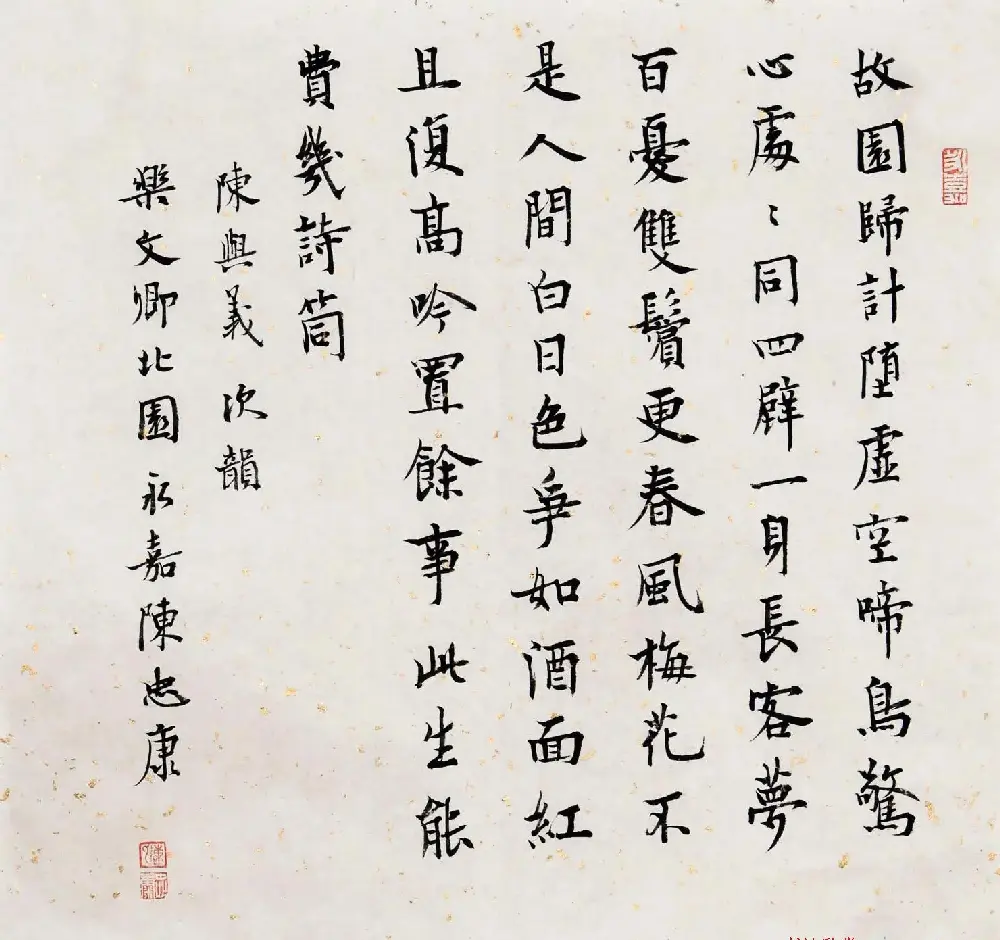 故園歸計墮虛空啼鳥驚
心處〻同四壁一身長客夢
百憂雙鬢更春風梅花不
是人間白日色爭如酒面紅
且復高吟置餘事此生能
費幾詩筒
陳與義 次韻
樂文卿北園永嘉陳忠康
永嘉